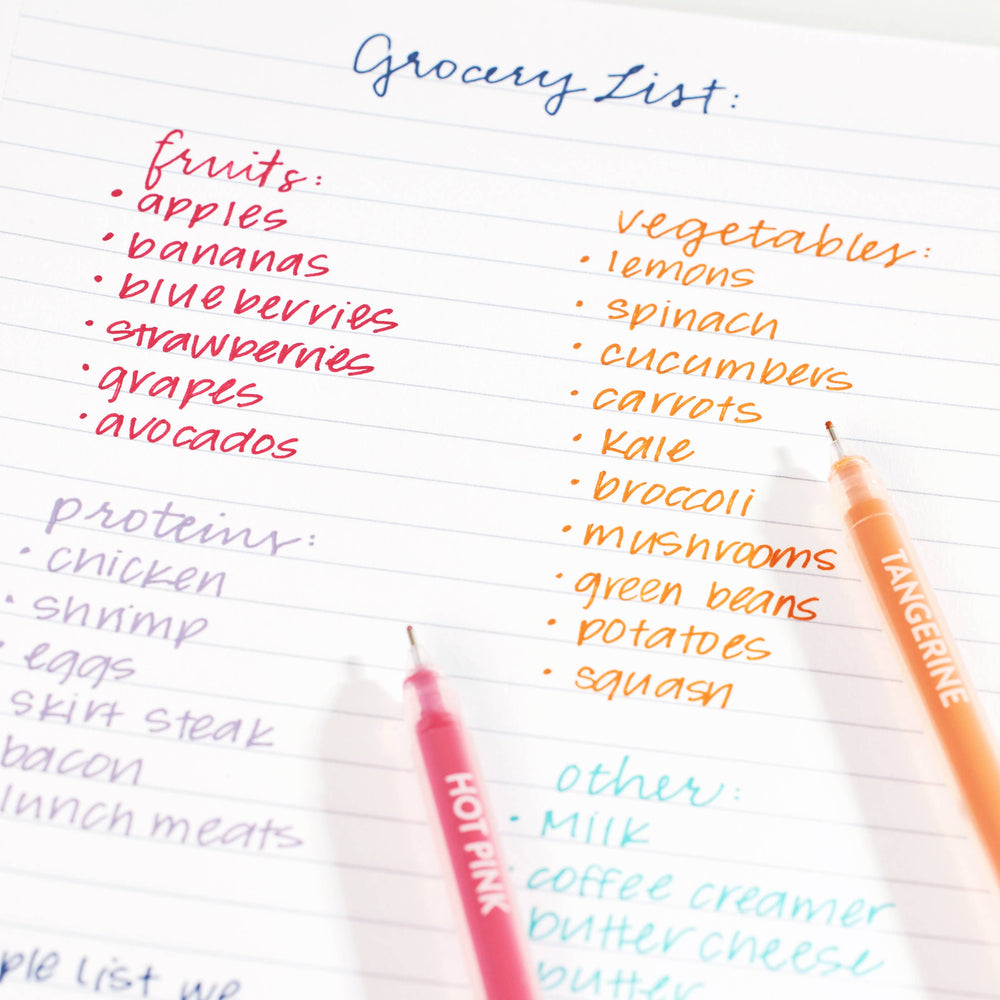 Grocery List:
fruits:
• apples
• bananas
• blueberries
• strawberries
• grapes
• avocados
vegetables:
• lemons
• spinach
• cucumbers
• carrots
• kale
• broccoli
• mushrooms
• green beans
• potatoes
• squash
proteins:
• chicken
• shrimp
• eggs
skirt steak
bacon
lunch meats
other:
• Milk
• coffee creamer
butter cheese
butter
list we
HOT PINK
TANGERINE